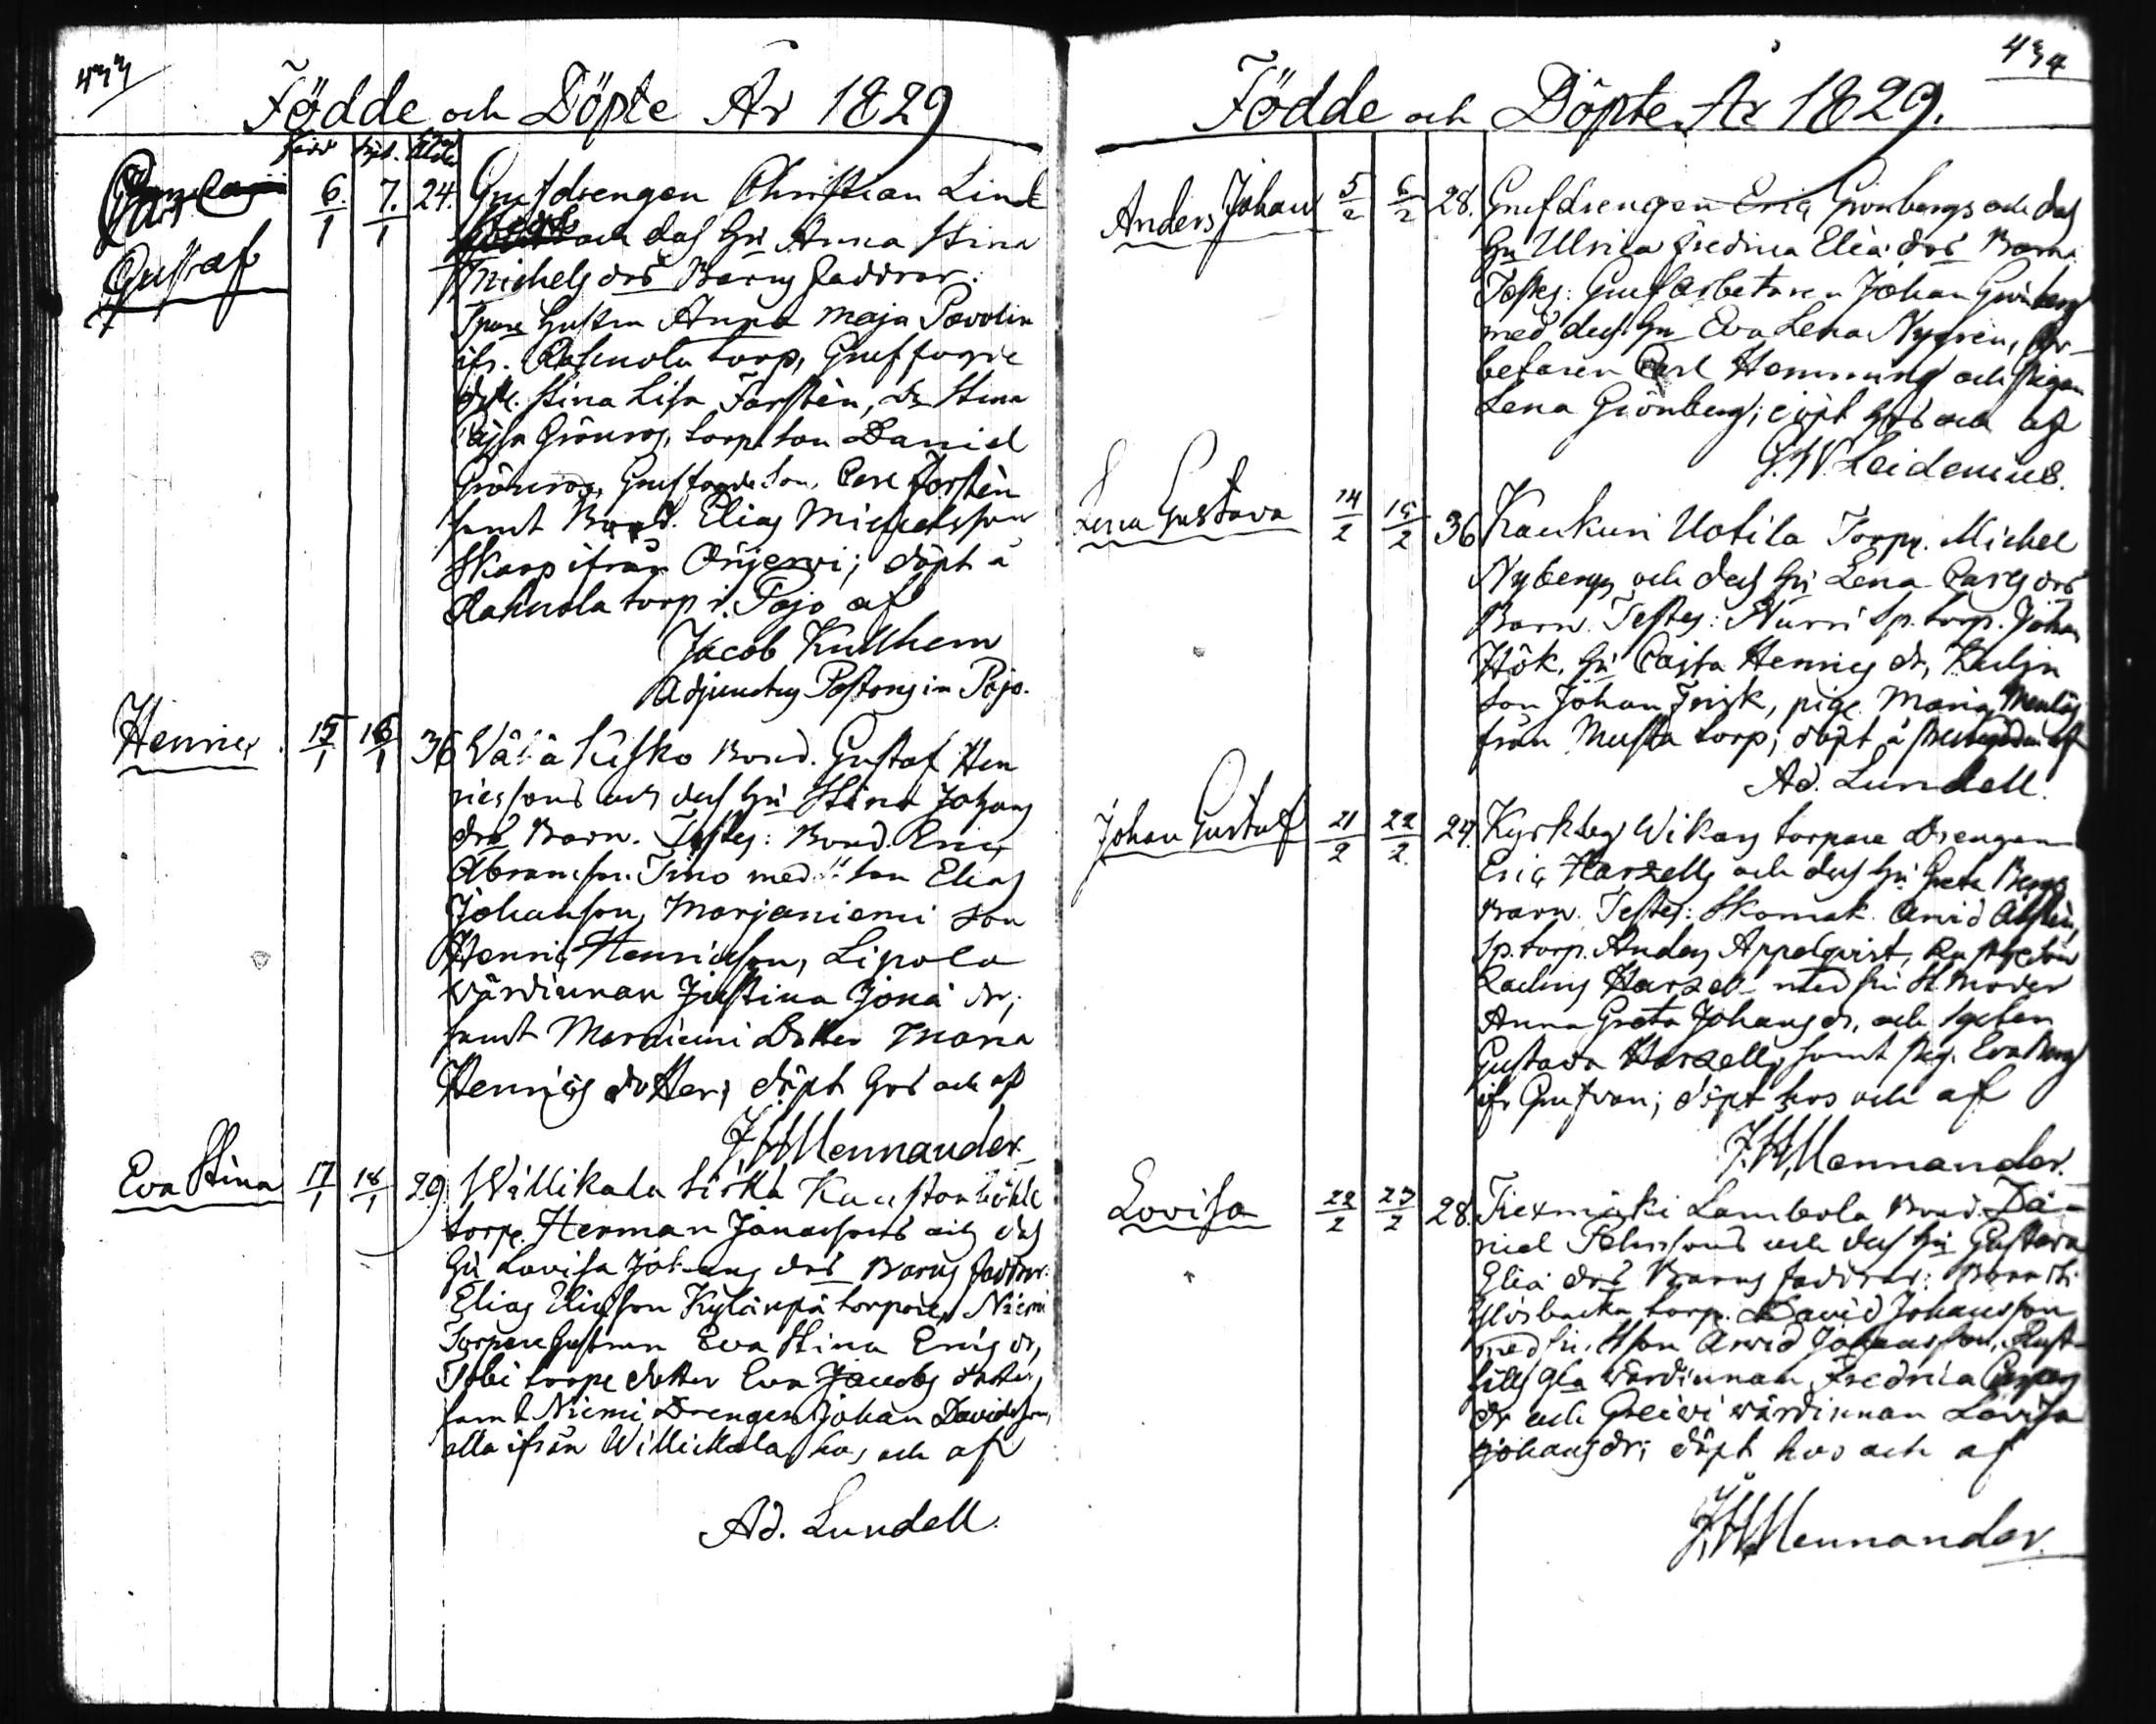 433
Födde och Döpte År 1829
född döpt. ålder
Carl
Gustaf
6/1 7/1 24. Grufdrengen Christian Lind
bergs och dess Hu Anna Stina
Michels drs Barns faddrar:
Torpare Hustrun Anna Maja Pavolin
ifr. torp, Gruffogde
dott. Stina Lisa Farstèn, dr Stina
Cajsa Grönroos, torp. son Daniel
Grönroos, Gruffogde son, Carl Forstèn
samt Bond. Elias Michelsson
Skarp ifrån Orijerwi; döpt å
torp i Pojo af
Jacob Kullhem
Adjunctus Pastoris in Pojo.
Henric 15/1 16/1 36 Wälä Kisko Bond. Gustaf Hen
ricssons och dess Hu Stina Johans
drs Barn. Testes: Bond. Eric
Abramson Timo med son Elias
Johanson, Marjaniemi son
Henric Henricsson, Lipola
wärdinnan Justina Jona dr,
samt Marniemi Dotter Maria
Henrics dotter; döpt hos och af
J. H. Mennander.
Eva Stina 17/1 18/1 29. Willikala
torp. Herman Jonassons och dess
Hu Lovisa Johans drs Barns faddrar:
Elias Eliasson Kylänpä torpare, Niemi
Torpare hustrun Eva Stina Erics dr,
torpe dotter Eva Jacobs dotter,
samt Niemi Drengen Johan Davidsson,
alla ifrån Willickala, hos och af
Ad. Lundell.
434
Födde och Döpte År 1829.
Anders Johan 5/2 6/2 28. Grufdrengen Eric Grönbergs och dess
Hu Ulrica Fredrica Elia drs Barn.
Testes: Grufarbetaren Johan Grönberg
med dess Hu Eva Lena Nygrèn, Ar-
betaren Carl Hemming och Pigan
Lena Grönberg; döpt hos och af
G. W. Leidenius.
Lena Gustava 14/2 15/2 36 Kaukuri Uotila Torp. Michel
Nybergs och dess Hu Lena Carls drs
Barn. Testes: Nurri Sp. torp. Johan
Hök, Hu Cajsa Henrics dr,
son Johan Frisk, pig. Maria
från Musta torp; döpt å af
Ad. Lundell.
Johan Gustaf 21/2 22/2 24. Kyrkbys Wikars torpare Drengen
Eric Harzells och dess Hu Greta Bergs
Barn. Testes: Skomak. Arvid
Sp. torp. Anders Appelqvist,
Harzell med sin St. Moder
Anna Greta Johans dr, och
Gustava Harzell, samt pig. Eva Berg
ifr Grufvan; döpt hos och af
J. H. Mennander.
Lovisa 22/2 23/2 28. Fiexmäki Lambola Bond. Da-
niel Pehrssons och dess Hu Gustava
Elia drs Barns faddrar:
torp. David Johansson
med sin St. son Arvid Johansson, Rust-
hålls gla wärdinnan Fredrica Caspers
dr och wärdinnan Lovisa
Johans dr; döpt hos och af
J. H. Mennander.